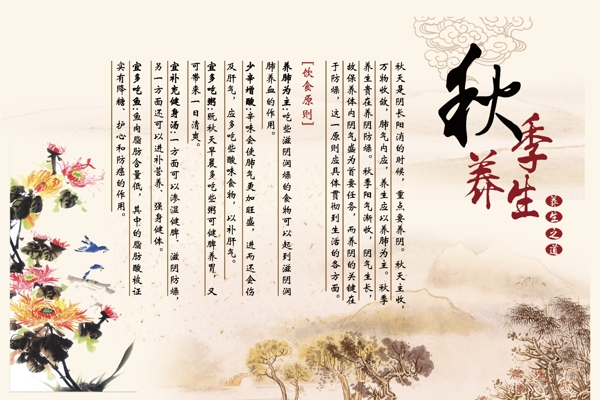 秋季养生
养生之道
秋天是阴长阳消的时候，重点要养阴。秋天主收，
万物收敛，肺气内应，养生应以养肺为主。秋季
养生贵在养阴防燥。秋季阳气渐收，阴气生长，
故保养体内阴气盛为首要任务，而养阴的关键在
于防燥，这一原则应具体贯彻到生活的各方面。
[饮食原则]
养肺为主：吃些滋阴润燥的食物可以起到滋阴润
肺养血的作用。
少辛增酸：辛味会使肺气更加旺盛，进而还会伤
及肝气，应多吃些酸味食物，以补肝气。
宜多吃粥：既秋天早晨多吃些粥可健脾养胃，又
可带来一日清爽。
宜补充健身汤：一方面可以渗湿健脾、滋阴防燥，
另一方面还可以进补营养、强身健体。
宜多吃鱼：鱼肉脂肪含量低，其中的脂肪酸被证
实有降糖、护心和防癌的作用。